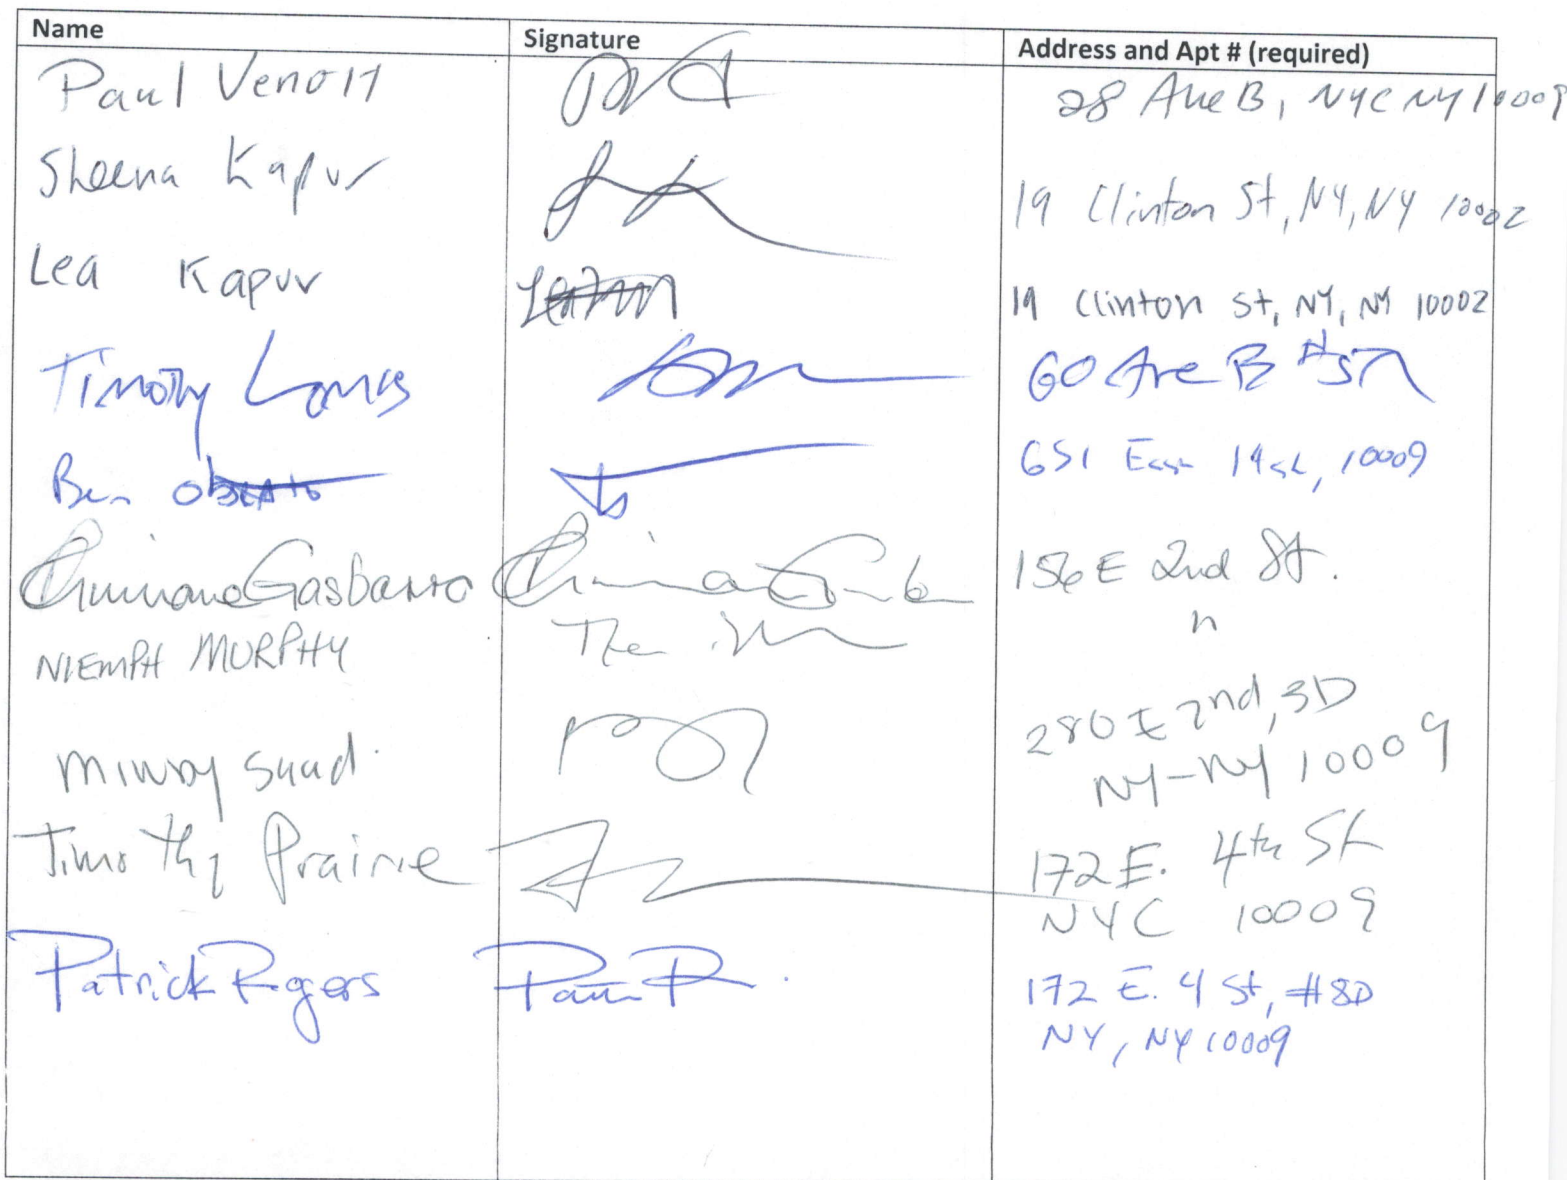 Name Signature Address and Apt # (required)
Paul 28 Ave B, NYC NY 10009
Sheena Kapur 19 Clinton St, NY, NY 10002
Lea Kapur 19 Clinton St, NY, NY 10002
Timothy 60 Ave B
Ben 651 East 14 st, 10009
Gasbarro 156 E 2nd St.
NIEMPH MURPHY "
Suad 280 E 2nd, 3D
NY-NY 10009
Timothy Prairie 172 E. 4th St
NYC 10009
Patrick Rogers 172 E. 4 St, #8D
NY, NY 10009